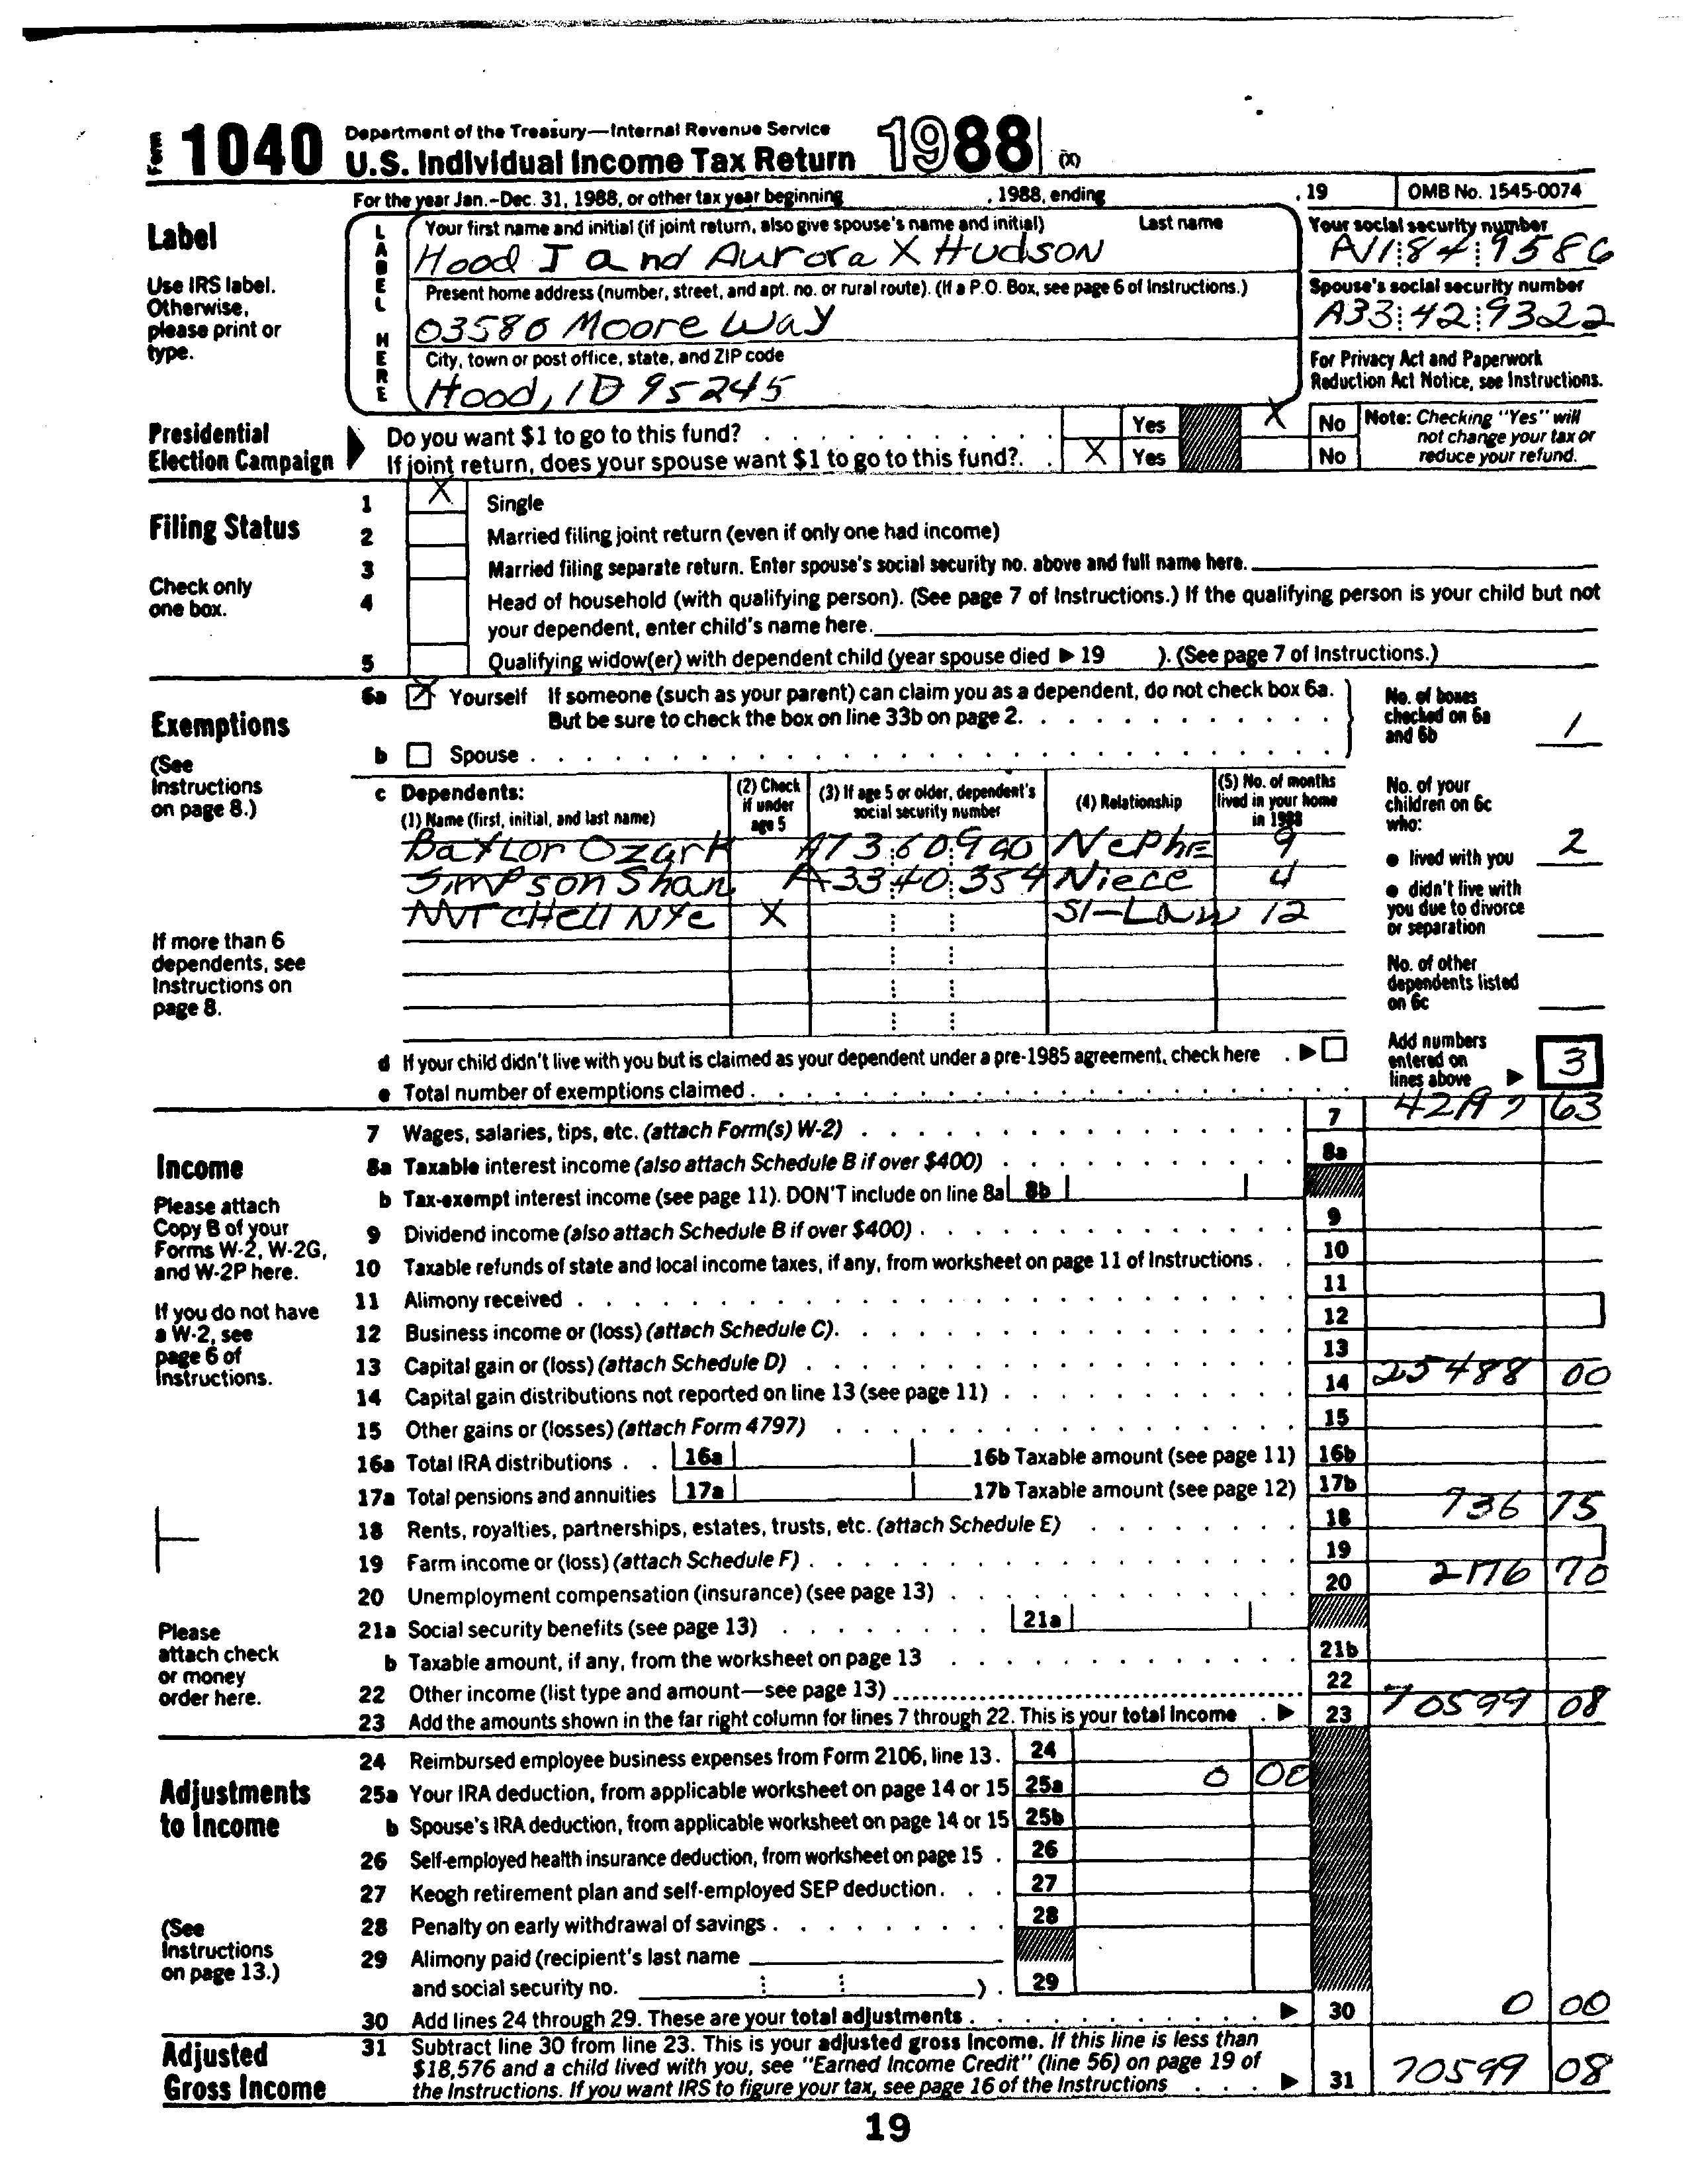 Form 1040 Department of the Treasury—Internal Revenue Service
U.S. Individual Income Tax Return 1988 (X)
For the year Jan.–Dec. 31, 1988, or other tax year beginning , 1988, ending , 19 OMB No. 1545-0074
Label
Use IRS label.
Otherwise,
please print or
type.
LABEL HERE
Your first name and initial (if joint return, also give spouse's name and initial) Last name
Hood J and Aurora X Hudson
Your social security number
Present home address (number, street, and apt. no. or rural route). (If a P.O. Box, see page 6 of Instructions.)
03586 Moore Way
Spouse's social security number
A33 42 9322
City, town or post office, state, and ZIP code
Hood, ID 95245
For Privacy Act and Paperwork
Reduction Act Notice, see Instructions.
Presidential
Election Campaign
Do you want $1 to go to this fund? Yes X No
If joint return, does your spouse want $1 to go to this fund? X Yes No
Note: Checking "Yes" will
not change your tax or
reduce your refund.
Filing Status
Check only
one box.
1 X Single
2 Married filing joint return (even if only one had income)
3 Married filing separate return. Enter spouse's social security no. above and full name here.
4 Head of household (with qualifying person). (See page 7 of Instructions.) If the qualifying person is your child but not
your dependent, enter child's name here.
5 Qualifying widow(er) with dependent child (year spouse died ▶ 19 ). (See page 7 of Instructions.)
Exemptions
(See
Instructions
on page 8.)
If more than 6
dependents, see
Instructions on
page 8.
6a X Yourself If someone (such as your parent) can claim you as a dependent, do not check box 6a.
But be sure to check the box on line 33b on page 2.
b Spouse
No. of boxes
checked on 6a
and 6b 1
c Dependents:
(1) Name (first, initial, and last name)
(2) Check
if under
age 5
(3) If age 5 or older, dependent's
social security number
(4) Relationship
(5) No. of months
lived in your home
in 1988
Baylor Ozark A73 60 940 Nephe 9
Simpson Shan A33 40 354 Niece 4
Mitchell Nye X SI-Law 12
No. of your
children on 6c
who:
● lived with you 2
● didn't live with
you due to divorce
or separation
No. of other
dependents listed
on 6c
d If your child didn't live with you but is claimed as your dependent under a pre-1985 agreement, check here ▶
e Total number of exemptions claimed
Add numbers
entered on
lines above ▶ 3
Income
Please attach
Copy B of your
Forms W-2, W-2G,
and W-2P here.
If you do not have
a W-2, see
page 6 of
Instructions.
Please
attach check
or money
order here.
7 Wages, salaries, tips, etc. (attach Form(s) W-2) 7 63
8a Taxable interest income (also attach Schedule B if over $400) 8a
b Tax-exempt interest income (see page 11). DON'T include on line 8a 8b
9 Dividend income (also attach Schedule B if over $400) 9
10 Taxable refunds of state and local income taxes, if any, from worksheet on page 11 of Instructions 10
11 Alimony received 11
12 Business income or (loss) (attach Schedule C) 12
13 Capital gain or (loss) (attach Schedule D) 13
14 Capital gain distributions not reported on line 13 (see page 11) 14 25488 00
15 Other gains or (losses) (attach Form 4797) 15
16a Total IRA distributions 16a 16b Taxable amount (see page 11) 16b
17a Total pensions and annuities 17a 17b Taxable amount (see page 12) 17b
18 Rents, royalties, partnerships, estates, trusts, etc. (attach Schedule E) 18 736 75
19 Farm income or (loss) (attach Schedule F) 19
20 Unemployment compensation (insurance) (see page 13) 20 2176 70
21a Social security benefits (see page 13) 21a
b Taxable amount, if any, from the worksheet on page 13 21b
22 Other income (list type and amount—see page 13) 22
23 Add the amounts shown in the far right column for lines 7 through 22. This is your total income ▶ 23 70599 08
Adjustments
to Income
(See
Instructions
on page 13.)
24 Reimbursed employee business expenses from Form 2106, line 13. 24
25a Your IRA deduction, from applicable worksheet on page 14 or 15 25a 0 00
b Spouse's IRA deduction, from applicable worksheet on page 14 or 15 25b
26 Self-employed health insurance deduction, from worksheet on page 15 26
27 Keogh retirement plan and self-employed SEP deduction 27
28 Penalty on early withdrawal of savings 28
29 Alimony paid (recipient's last name
and social security no. ). 29
30 Add lines 24 through 29. These are your total adjustments ▶ 30 0 00
Adjusted
Gross Income
31 Subtract line 30 from line 23. This is your adjusted gross income. If this line is less than
$18,576 and a child lived with you, see "Earned Income Credit" (line 56) on page 19 of
the Instructions. If you want IRS to figure your tax, see page 16 of the Instructions ▶ 31 70599 08
19